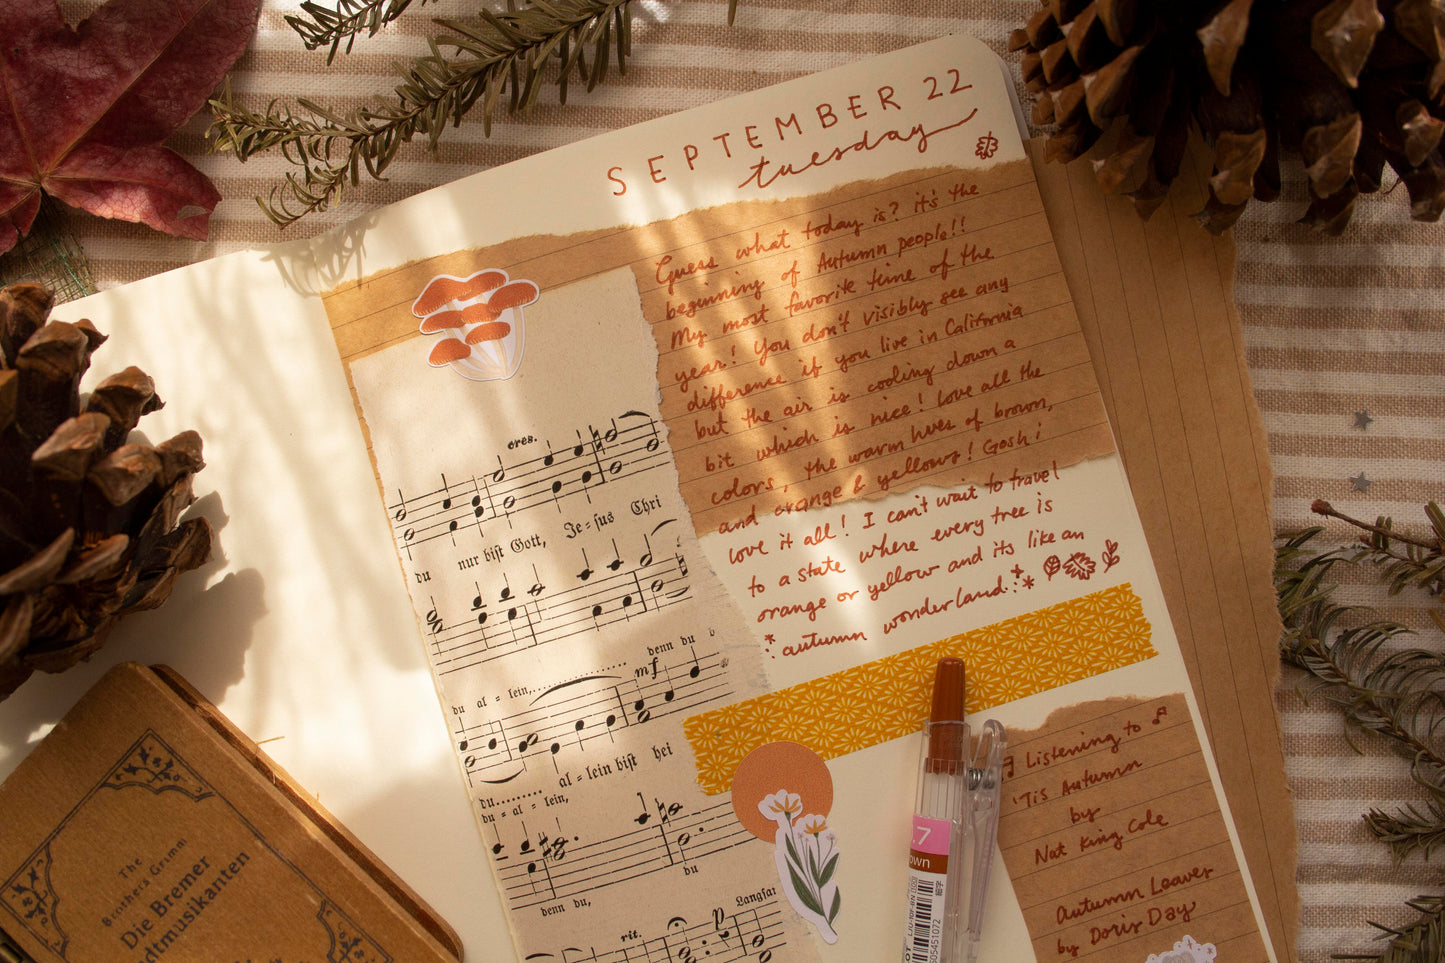 SEPTEMBER 22
tuesday
Guess what today is? it's the
beginning of Autumn people!!
My most favorite time of the
year! You don't visibly see any
difference if you live in California
but the air is cooling down a
bit which is nice! Love all the
colors, the warm hues of brown,
and orange & yellows! Gosh i
love it all! I can't wait to travel
to a state where every tree is
orange or yellow and its like an
autumn wonderland
cres.
du nur bist Gott, Je-sus Chri
denn du
mf
du al-lein,
du al-lein bist hei
du-al-lein,
du
denn du,
Langsam
rit. p
Listening to
'Tis Autumn
by
Nat King Cole
Autumn Leaves
by Doris Day
.7
own
The
Brothers Grimm
Die Bremer
dtmusikanten